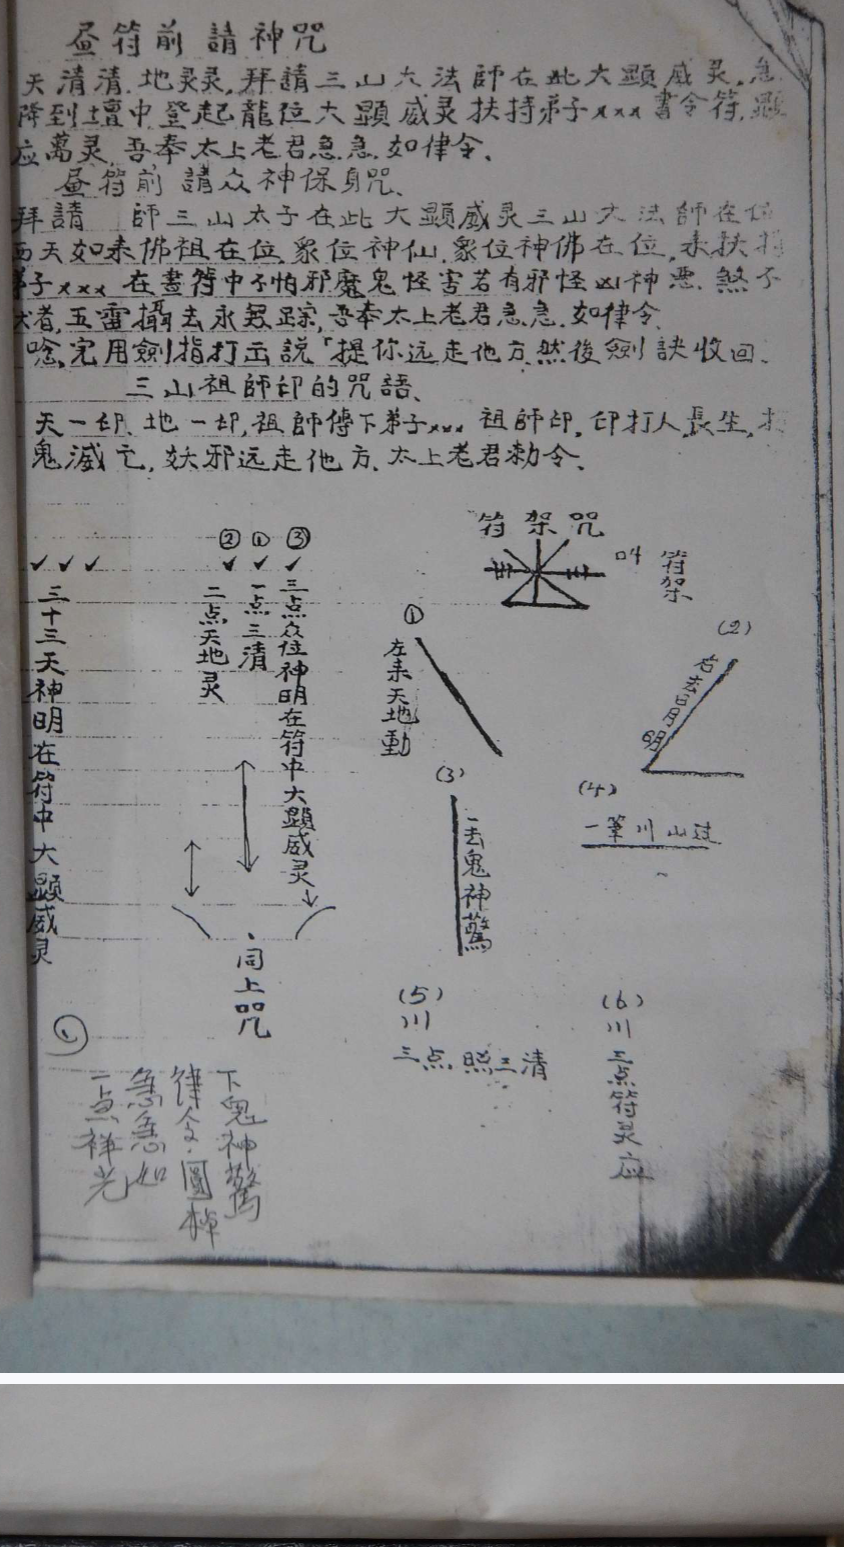 昼符前請神咒
天清清.地灵灵.拜請三山大法師在此大顕威灵.急
降到壇中登起龍位大顕威灵扶持弟子xxx書令符.顕
应萬灵.吾奉太上老君急急.如律令、
昼符前請众神保身咒、
拜請 師三山太子在此大顕威灵三山大法師在位
西天如来佛祖在位.衆位神仙.衆位神佛在位,来扶持
弟子xxx在畫符中不怕邪魔鬼怪害若有邪怪凶神悪.煞不
者,五雷攝去永無踪,吾奉太上老君急急.如律令.
唸完用劍指打出説「提你远走他方.然後劍訣收回.
三山祖師印的咒語.
天一印、地一印,祖師傅下弟子xxx祖師印.印打人長生,打
鬼滅亡,妖邪远走他方.太上老君勅令、
符架咒
叫 符架
② ① ③
三点众位神明在符中大顕威灵
一点三清
二点天地灵
三十三天神明在符中大顕威灵
同上咒
①
左来天地動
(2)
右去日月明
(3)
一去鬼神驚
(4)
一筆川山过
(5)
川
三点.照三清
(6)
川
三点符灵应
下鬼神驚
律令.圓
急急如
一点祥光